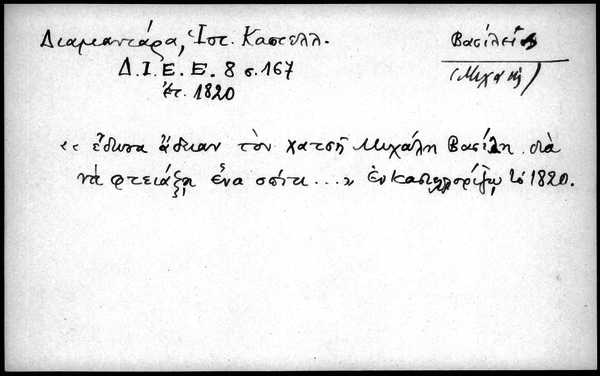 Διαμαντάρα, Ἱστ. Καστελλ.
Βασίλειος
Δ.Ι.Ε.Ε. 8 σ. 167
(Μιχαὴλ)
ἔτ. 1820
«ἔδωσα ἄδειαν τὸν χατσῆ Μιχάλη Βασίλη διὰ
νὰ φτειάξῃ ἕνα σπίτι...» Ἐν Καστελλορίζῳ τὸ 1820.